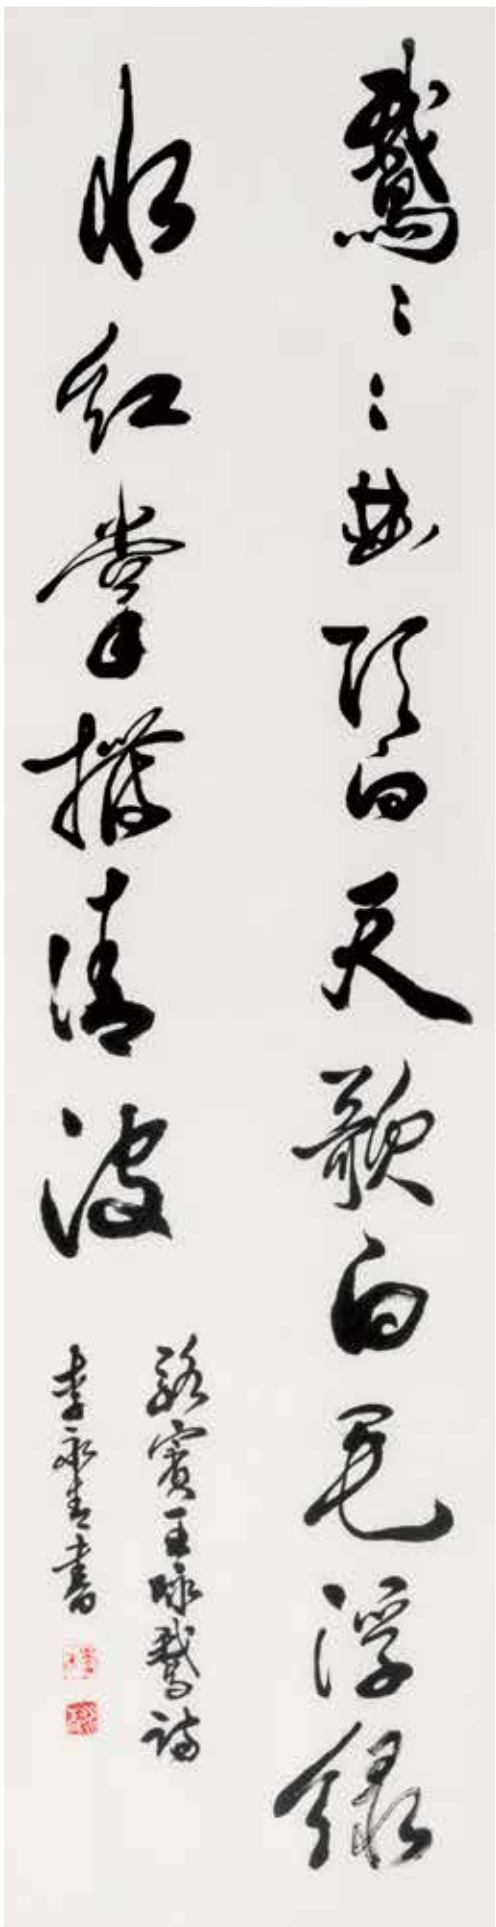 鵞〻〻曲項向天歌白毛浮綠
水紅掌撥清波
駱賓王咏鵞詩
李永青書